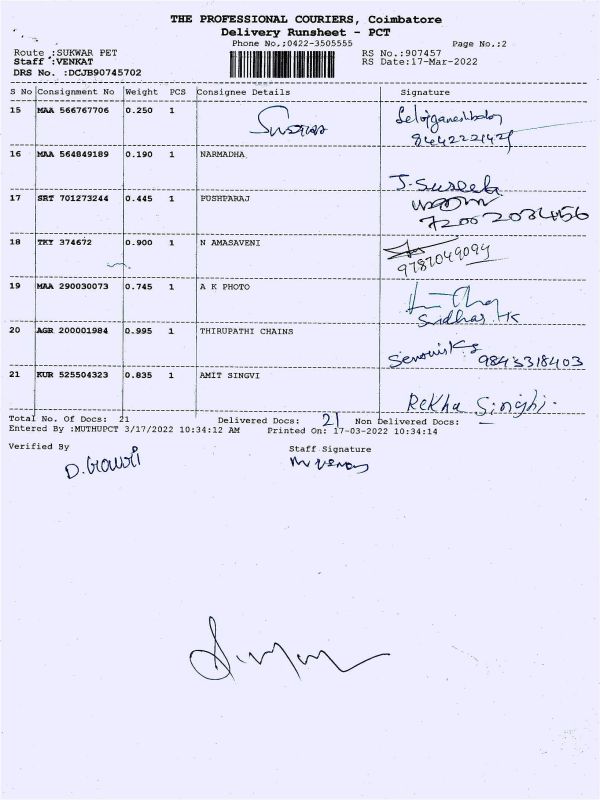 THE PROFESSIONAL COURIERS, Coimbatore
Delivery Runsheet - PCT
Phone No.,:0422-3505555 Page No.:2
Route :SUKWAR PET RS No.:907457
Staff :VENKAT RS Date:17-Mar-2022
DRS No. :DCJB90745702
S No Consignment No Weight PCS Consignee Details Signature
15 MAA 566767706 0.250 1
16 MAA 564849189 0.190 1 NARMADHA
J. Suseela
17 SRT 701273244 0.445 1 PUSHPARAJ
18 TKY 374672 0.900 1 N AMASAVENI
9787049099
19 MAA 290030073 0.745 1 A K PHOTO
Sridhar. HK
20 AGR 200001984 0.995 1 THIRUPATHI CHAINS
9843318403
21 KUR 525504323 0.835 1 AMIT SINGVI
Rekha Singhi.
Total No. Of Docs: 21 Delivered Docs: 21 Non Delivered Docs: -
Entered By :MUTHUPCT 3/17/2022 10:34:12 AM Printed On: 17-03-2022 10:34:14
Verified By Staff Signature
D. Gowri